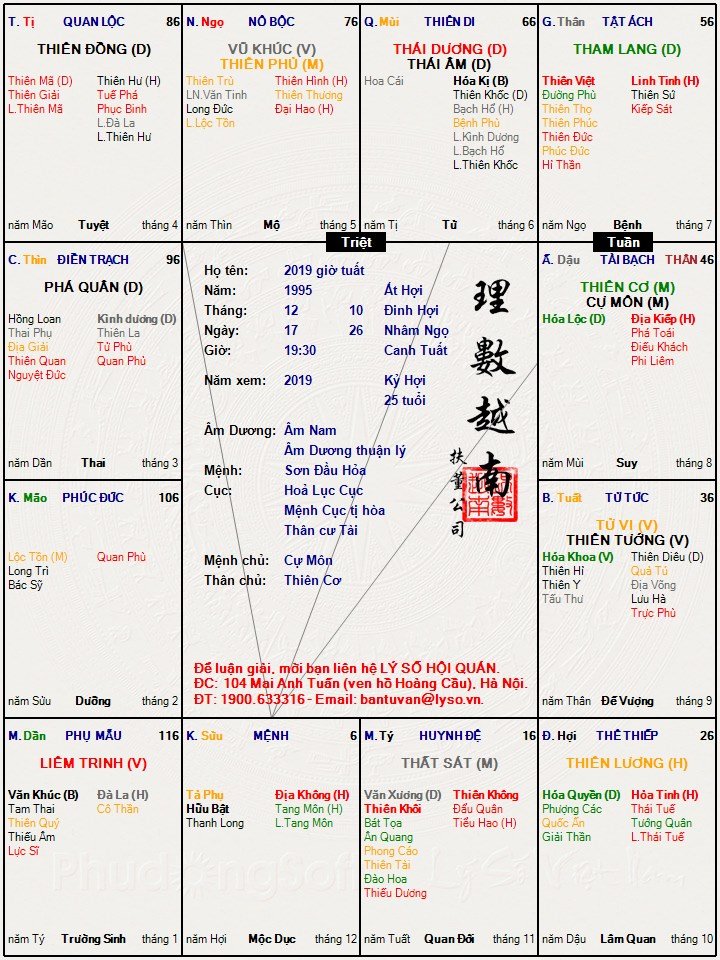 T. Tị QUAN LỘC 86
THIÊN ĐỒNG (D)
Thiên Mã (D) Thiên Hư (H)
Thiên Giải Tuế Phá
L.Thiên Mã Phục Binh
L.Đà La
L.Thiên Hư
năm Mão Tuyệt tháng 4
N. Ngọ NÔ BỘC 76
VŨ KHÚC (V)
THIÊN PHỦ (M)
Thiên Trù Thiên Hình (H)
LN.Văn Tinh Thiên Thương
Long Đức Đại Hao (H)
L.Lộc Tồn
năm Thìn Mộ tháng 5
Q. Mùi THIÊN DI 66
THÁI DƯƠNG (D)
THÁI ÂM (D)
Hoa Cái Hóa Kị (B)
Thiên Khốc (D)
Bạch Hổ (H)
Bệnh Phù
L.Kình Dương
L.Bạch Hổ
L.Thiên Khốc
năm Tị Tử tháng 6
G. Thân TẬT ÁCH 56
THAM LANG (D)
Thiên Việt Linh Tinh (H)
Đường Phù Thiên Sứ
Thiên Thọ Kiếp Sát
Thiên Phúc
Thiên Đức
Phúc Đức
Hỉ Thần
năm Ngọ Bệnh tháng 7
Triệt
Tuần
C. Thìn ĐIỀN TRẠCH 96
PHÁ QUÂN (D)
Hồng Loan Kình dương (D)
Thai Phụ Thiên La
Địa Giải Tử Phù
Thiên Quan Quan Phủ
Nguyệt Đức
năm Dần Thai tháng 3
Họ tên: 2019 giờ tuất
Năm: 1995 Ất Hợi
Tháng: 12 10 Đinh Hợi
Ngày: 17 26 Nhâm Ngọ
Giờ: 19:30 Canh Tuất
Năm xem: 2019 Kỷ Hợi
25 tuổi
Âm Dương: Âm Nam
Âm Dương thuận lý
Mệnh: Sơn Đầu Hỏa
Cục: Hoả Lục Cục
Mệnh Cục tị hòa
Thân cư Tài
Mệnh chủ: Cự Môn
Thân chủ: Thiên Cơ
理數越南
扶董公司
Để luận giải, mời bạn liên hệ LÝ SỐ HỘI QUÁN.
ĐC: 104 Mai Anh Tuấn (ven hồ Hoàng Cầu), Hà Nội.
ĐT: 1900.633316 - Email: bantuvan@lyso.vn.
Ấ. Dậu TÀI BẠCH THÂN 46
THIÊN CƠ (M)
CỰ MÔN (M)
Hóa Lộc (D) Địa Kiếp (H)
Phá Toái
Điếu Khách
Phi Liêm
năm Mùi Suy tháng 8
K. Mão PHÚC ĐỨC 106
Lộc Tồn (M) Quan Phù
Long Trì
Bác Sỹ
năm Sửu Dưỡng tháng 2
B. Tuất TỬ TỨC 36
TỬ VI (V)
THIÊN TƯỚNG (V)
Hóa Khoa (V) Thiên Diêu (D)
Thiên Hỉ Quả Tú
Thiên Y Địa Võng
Tấu Thư Lưu Hà
Trực Phù
năm Thân Đế Vượng tháng 9
M. Dần PHỤ MẪU 116
LIÊM TRINH (V)
Văn Khúc (B) Đà La (H)
Tam Thai Cô Thần
Thiên Quý
Thiếu Âm
Lực Sĩ
năm Tý Trường Sinh tháng 1
K. Sửu MỆNH 6
Tả Phụ Địa Không (H)
Hữu Bật Tang Môn (H)
Thanh Long L.Tang Môn
năm Hợi Mộc Dục tháng 12
M. Tý HUYNH ĐỆ 16
THẤT SÁT (M)
Văn Xương (D) Thiên Không
Thiên Khôi Đẩu Quân
Bát Tọa Tiểu Hao (H)
Ân Quang
Phong Cáo
Thiên Tài
Đào Hoa
Thiếu Dương
năm Tuất Quan Đới tháng 11
Đ. Hợi THÊ THIẾP 26
THIÊN LƯƠNG (H)
Hóa Quyền (D) Hỏa Tinh (H)
Phượng Các Thái Tuế
Quốc Ấn Tướng Quân
Giải Thần L.Thái Tuế
năm Dậu Lâm Quan tháng 10